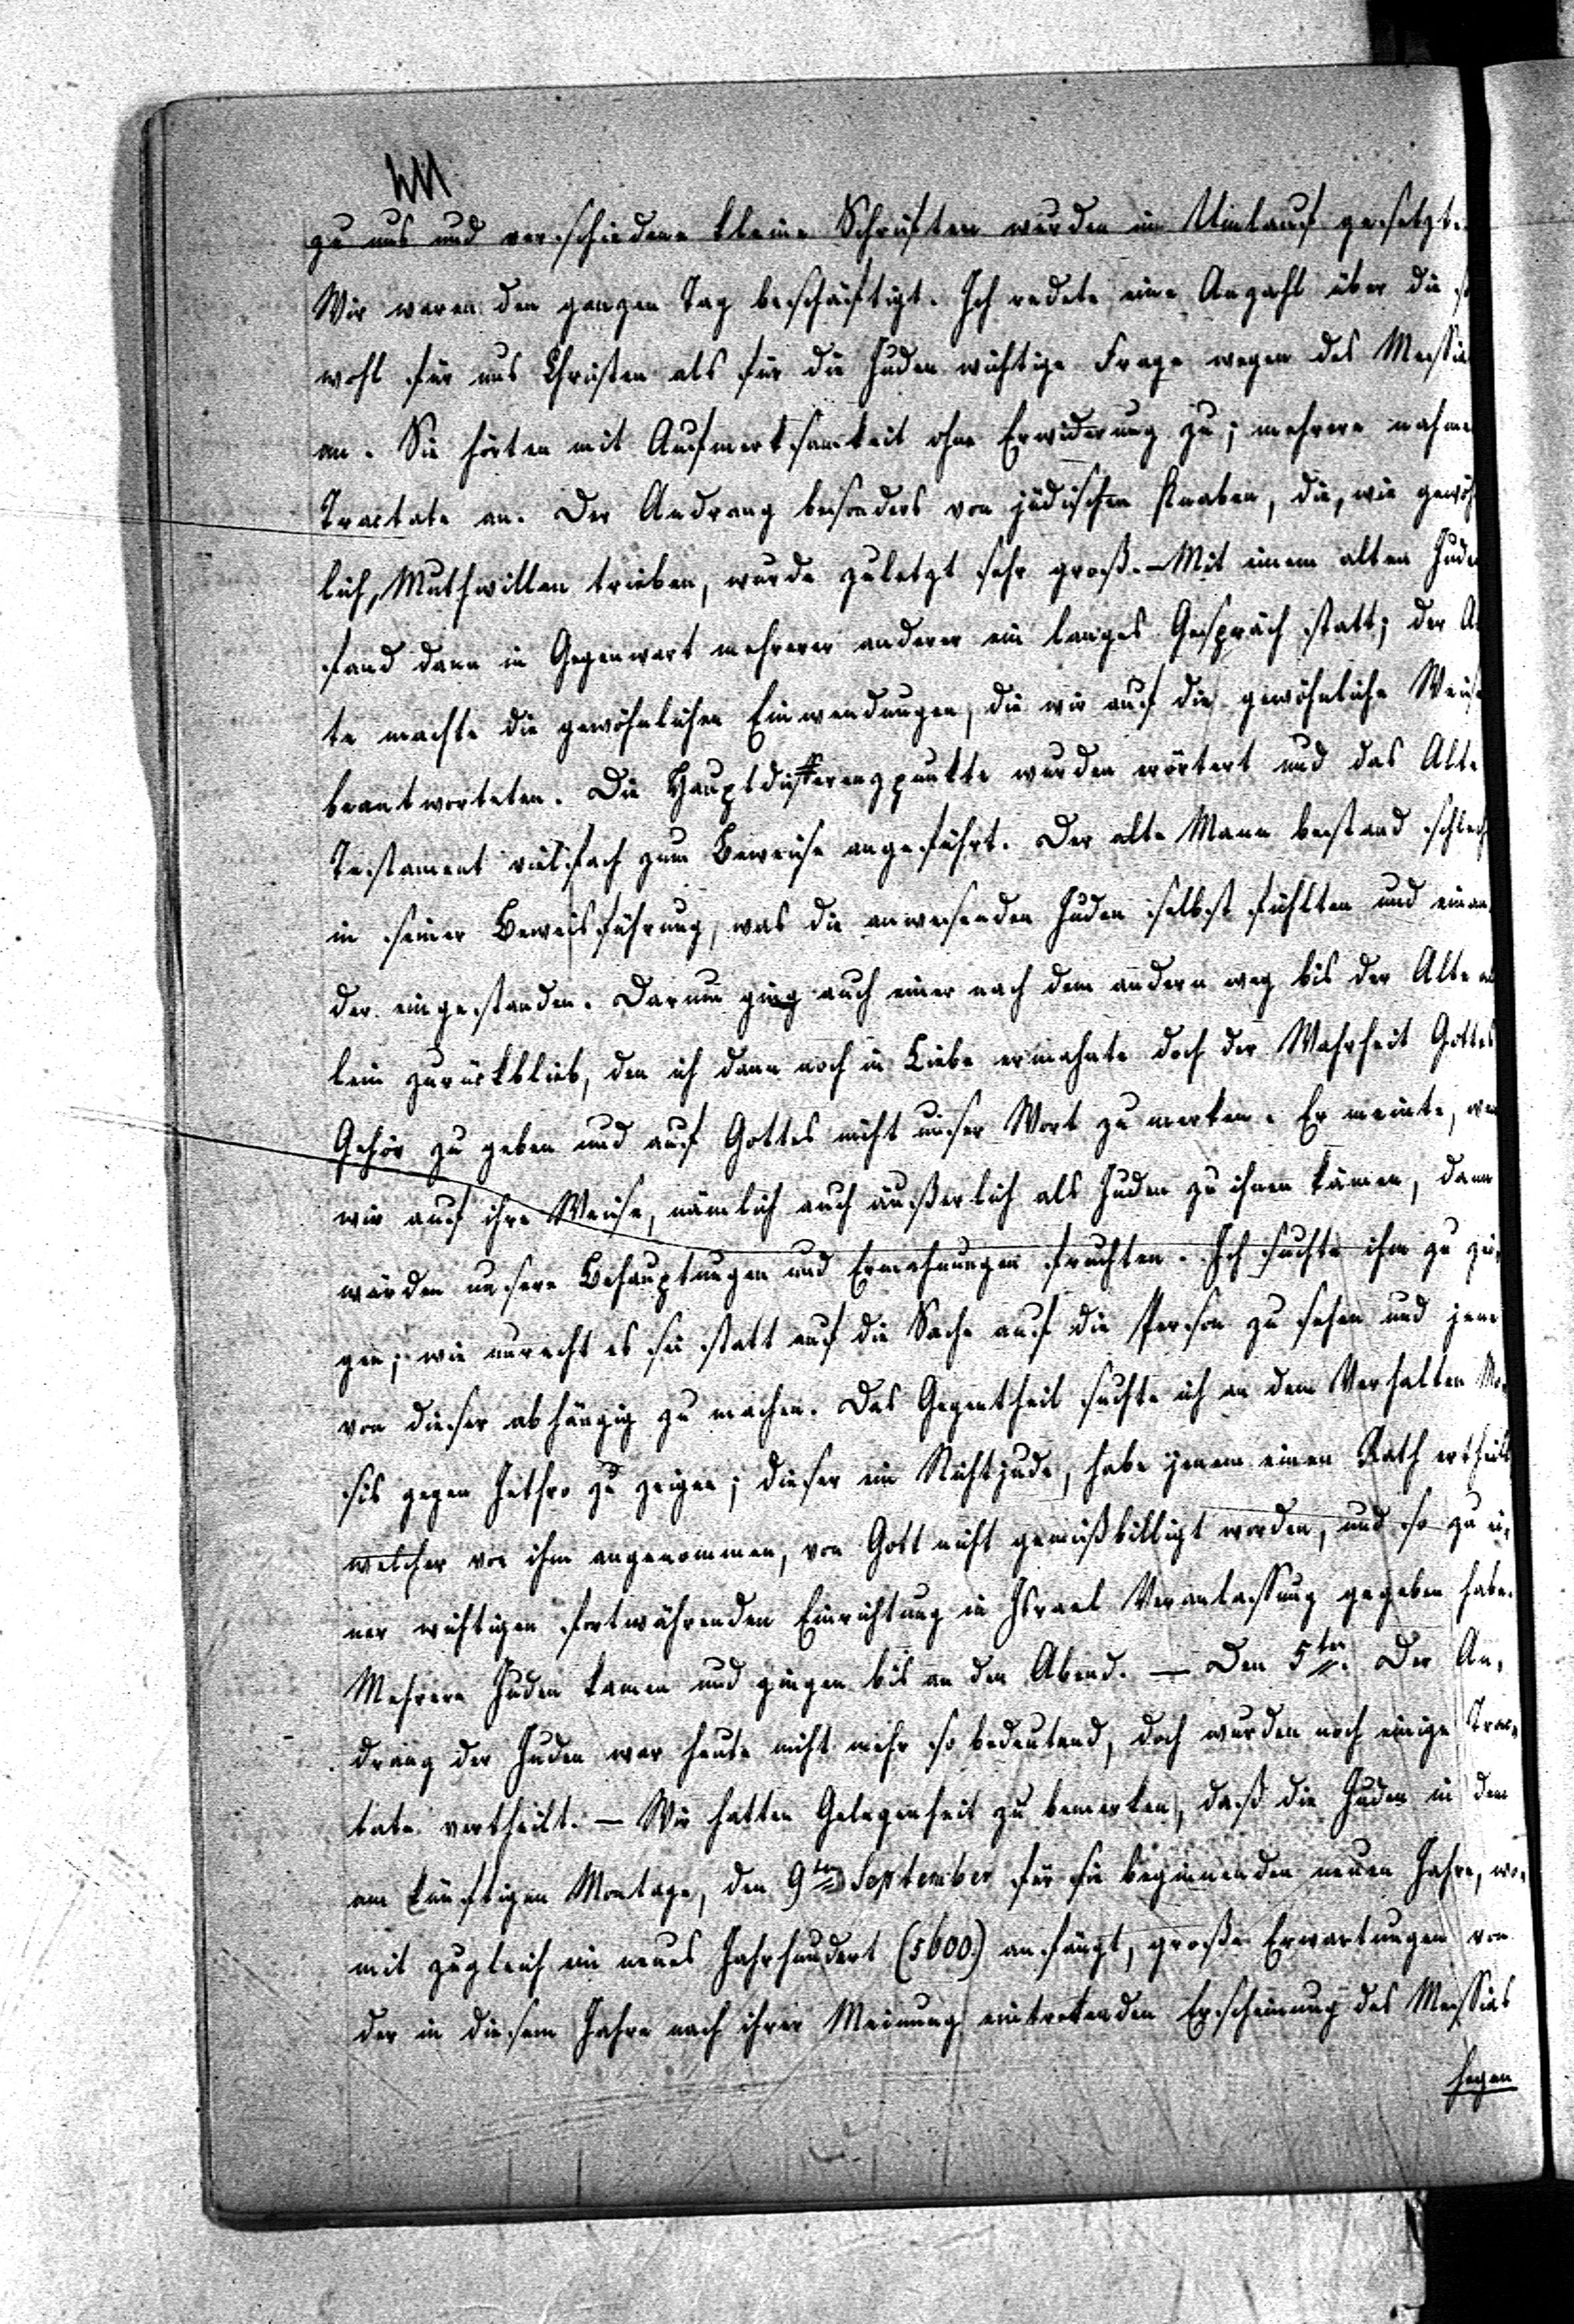 zu uns und verschiedene kleine Schriften wurden in Umlauf gesetzt.
Wir waren den ganzen Tag beschäftigt. Ich redete eine Anzahl über die so
wohl für uns Christen als für die Juden wichtige Frage wegen des Messias
an. Sie hörten mit Aufmerksamkeit ohne Erwiderung zu; mehrere nahmen
Tractate an. Der Andrang besonders von jüdischen Knaben, die, wie gewöhn
lich, Muthwillen trieben, wurde zuletzt sehr groß. – Mit einem alten Juden
fand dann in Gegenwart mehrerer anderer ein langes Gespräch statt; der Al
te machte die gewöhnlichen Einwendungen, die wir auf die gewöhnliche Weise
beantworteten. Die Hauptdifferenzpunkte wurden erörtert und das Alte
Testament vielfach zum Beweise angeführt. Der alte Mann bestand schlecht
in seiner Beweisführung, was die anwesenden Juden selbst fühlten und einan-
der eingestanden. Darum ging auch einer nach dem andern weg bis der Alte al
lein zurückblieb, den ich dann noch in Liebe ermahnte doch der Wahrheit Gottes
Gehör zu geben und auf Gottes nicht unser Wort zu merken. Er meinte, wenn
wir auf ihre Weise, nämlich auch äußerlich als Juden zu ihnen kämen, dann
würden unsere Behauptungen und Ermahnungen fruchten. Ich suchte ihm zu zei-
gen, wie unrecht es sei statt auf die Sache auf die Person zu sehen und jene
von dieser abhängig zu machen. Das Gegentheil suchte ich an dem Verhalten Mo-
sis gegen Jethro zu zeigen; dieser ein Nichtjude, habe jenem einen Rath ertheilt
welcher von ihm angenommen, von Gott nicht gemißbilligt worden, und so zu ei-
ner wichtigen fortwährenden Einrichtung in Israel Veranlassung gegeben habe.
Mehrere Juden kamen und gingen bis an den Abend. – Den 5ten. Der An-
drang der Juden war heute nicht mehr so bedeutend, doch wurden noch einige Trac-
tate vertheilt. – Wir hatten Gelegenheit zu bemerken, daß die Juden in dem
am künftigen Montage, den 9ten September für sie beginnenden neuen Jahre, wo-
mit zugleich ein neues Jahrhundert (5600) anfängt, große Erwartungen von
der in diesem Jahre nach ihrer Meinung eintretenden Erscheinung des Messias
hegen